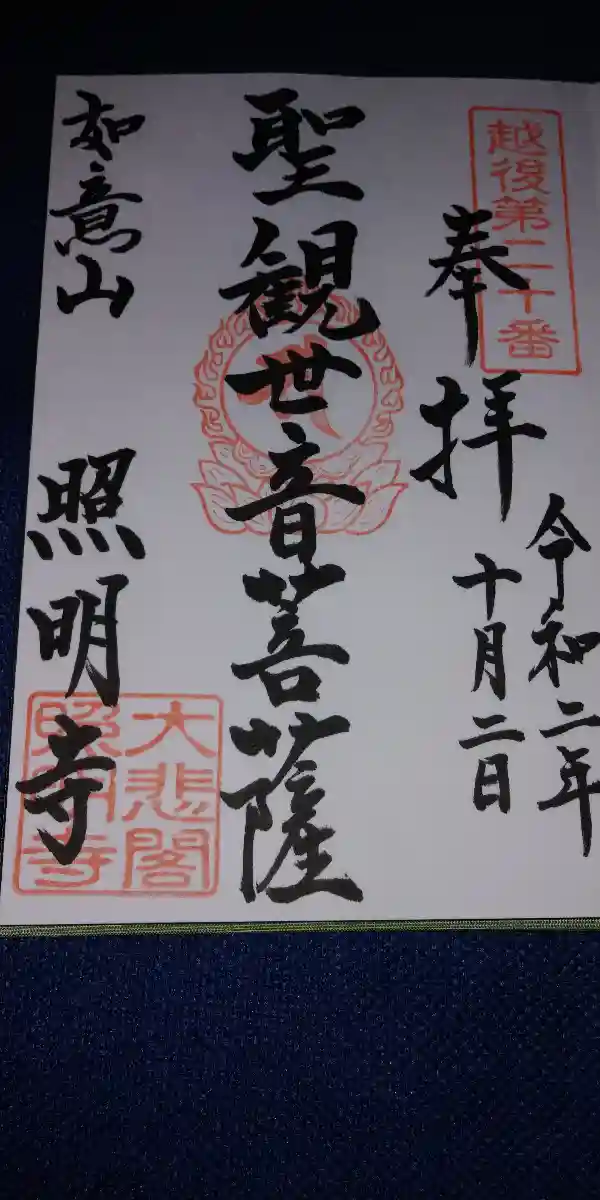 越後第二十番
奉拝
令和二年
十月二日
聖観世音菩薩
如意山 照明寺
大悲閣
照明寺